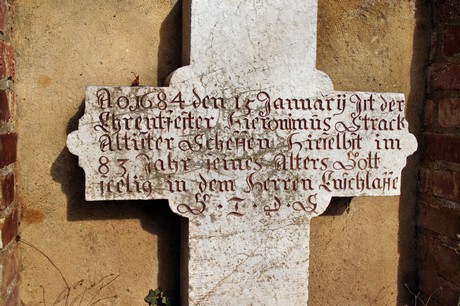 Ao 1684 den 15 Januarÿ Jst der
Ehrentfester Hieronimus Strack
Altister Scheffen Hieselbst im
83 Jahr seines Alters Gott
seelig in dem Herren Entschlaffe